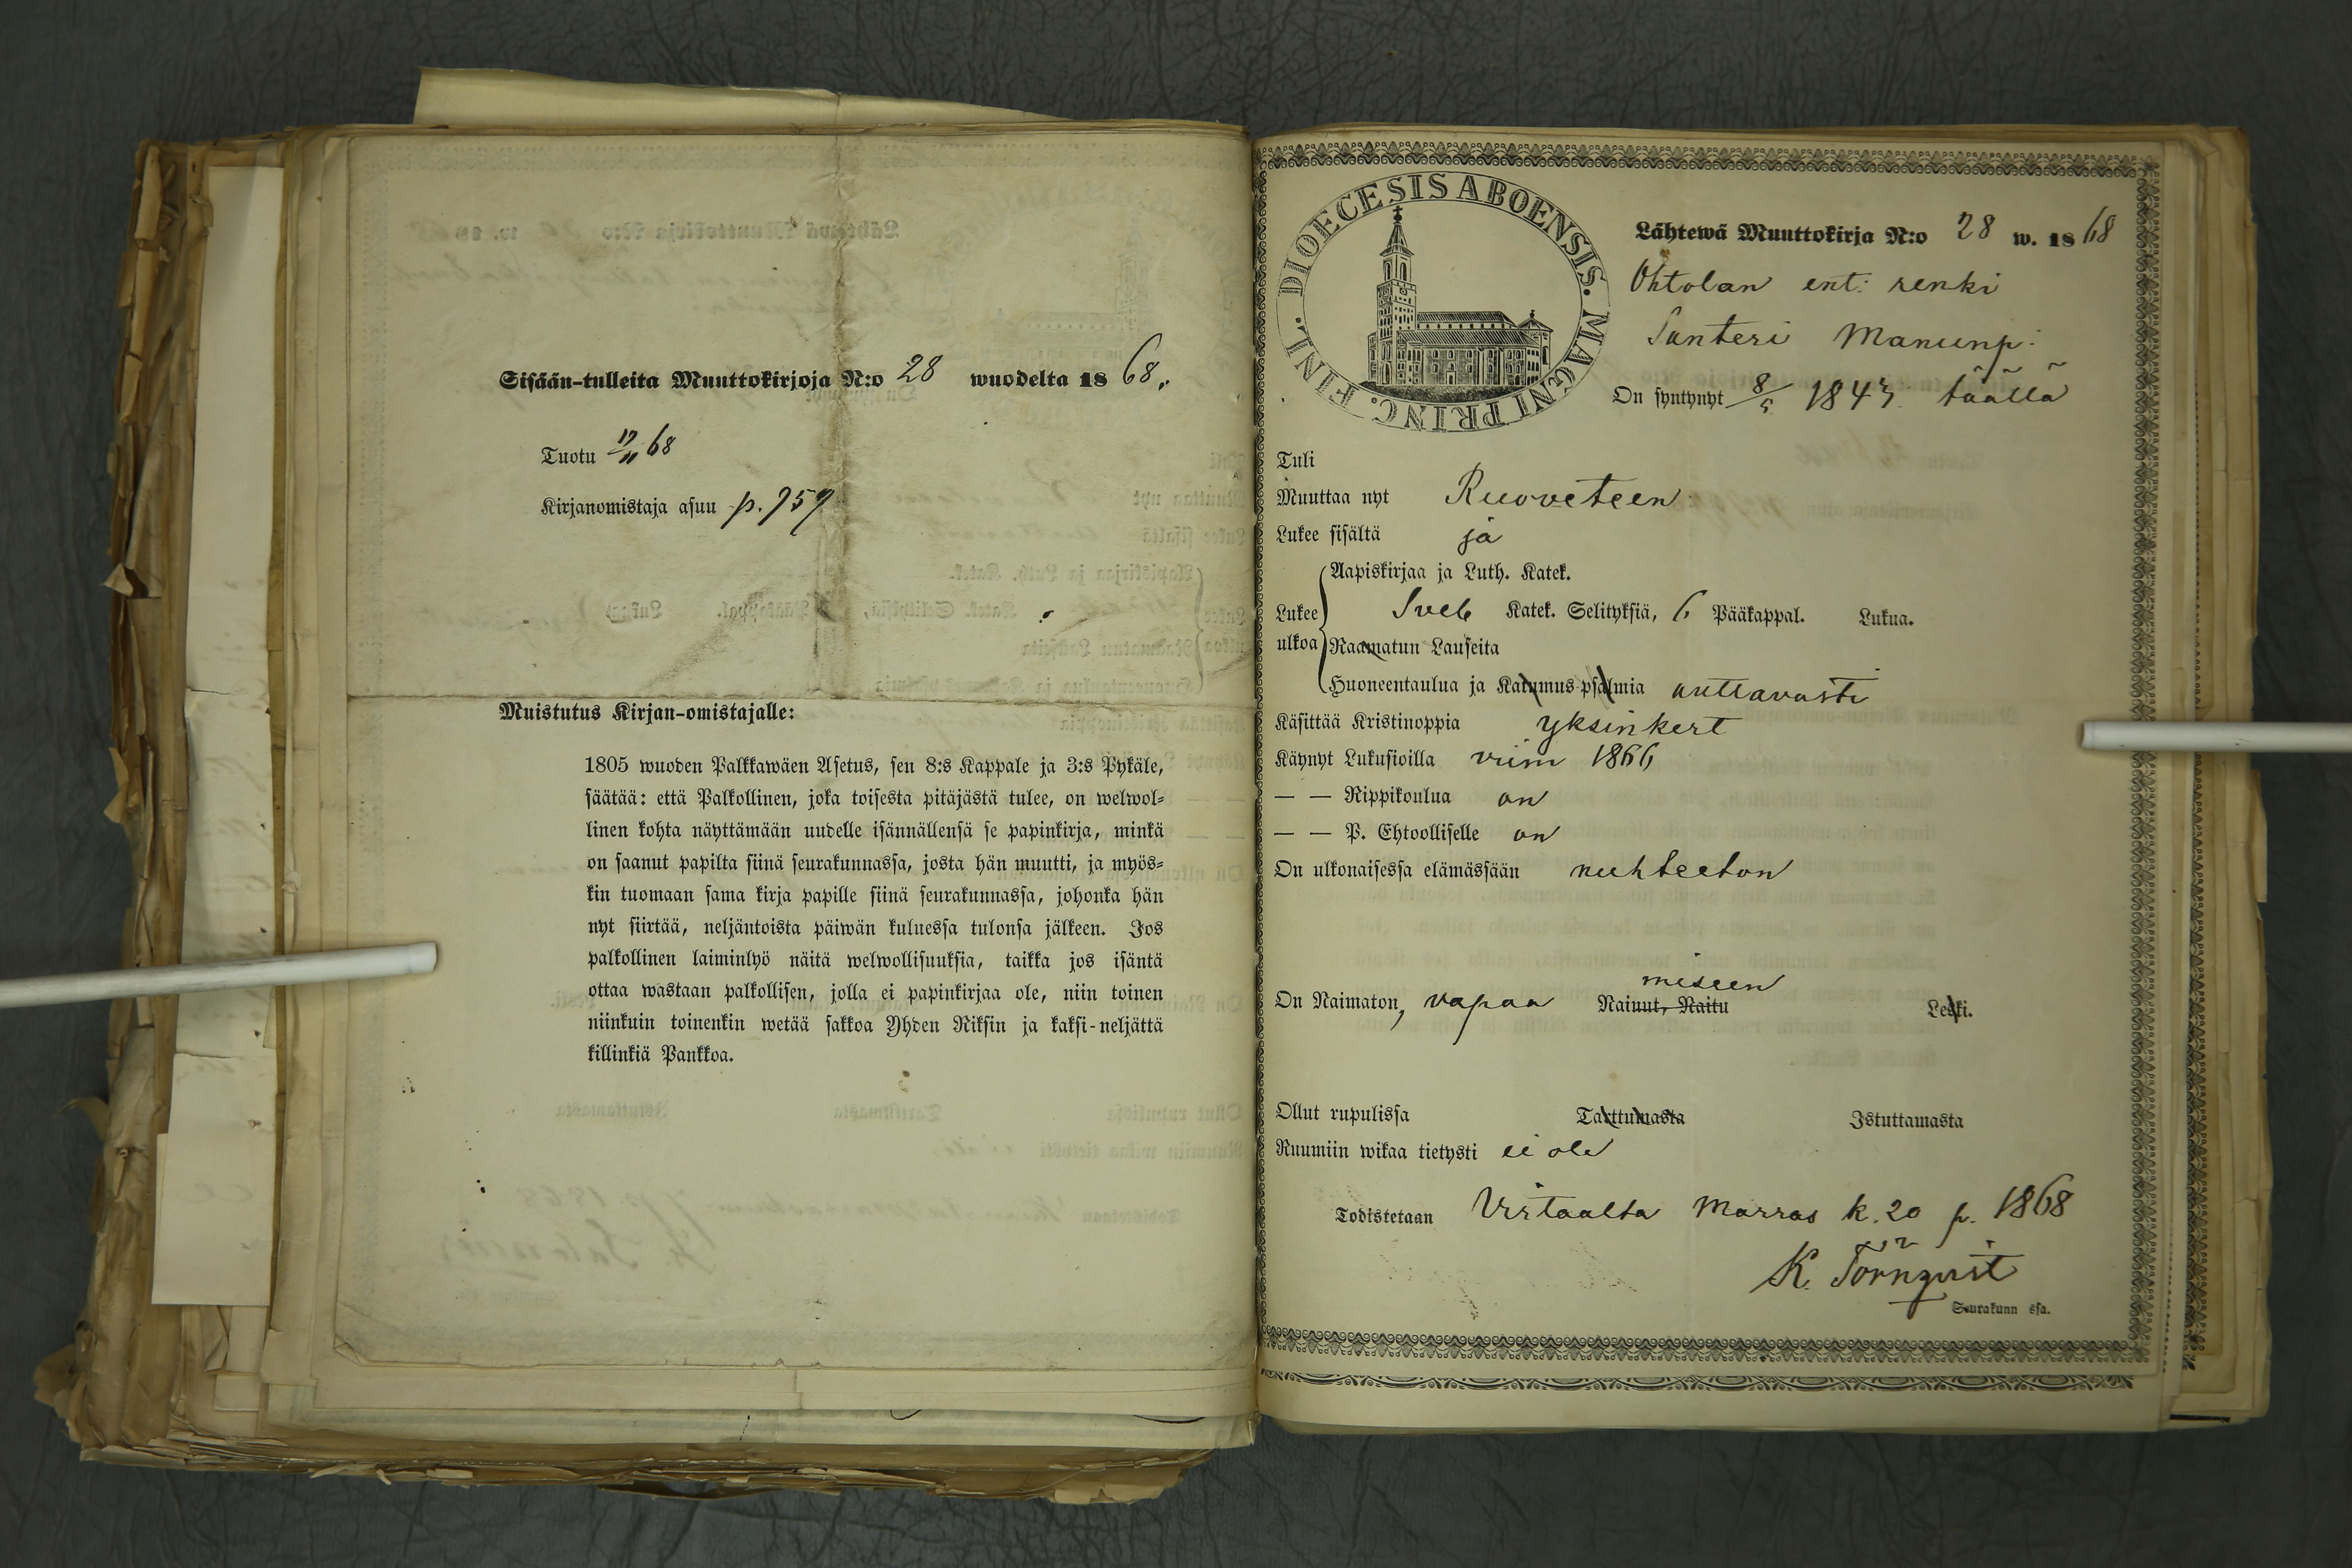 Sisään-tulleita Muuttokirjoja N:o 28 wuodelta 1868.
Tuotu 68
Kirjanomistaja asuu p. 959
Muistutus Kirjan-omistajalle:
1805 wuoden Palkkawäen Asetus, sen 8:s Kappale ja 3:s Pykäle,
säätää: että Palkollinen, joka toisesta pitäjästä tulee, on welwol-
linen kohta näyttämään uudelle isännällensä se papinkirja, minkä
on saanut papilta siinä seurakunnassa, josta hän muutti, ja myös-
kin tuomaan sama kirja papille siinä seurakunnassa, johonka hän
nyt siirtää, neljäntoista päiwän kuluessa tulonsa jälkeen. Jos
palkollinen laiminlyö näitä welwollisuuksia, taikka jos isäntä
ottaa wastaan palkollisen, jolla ei papinkirjaa ole, niin toinen
niinkuin toinenkin wetää sakkoa Yhden Riksin ja kaksi-neljättä
killinkiä Pankkoa.
DIOECESIS ABOENSIS. MAGNI PRINC. FINL.
Lähtewä Muuttokirja N:o 28 w. 1868
Ohtolan ent: renki
Santeri Manunp:
On syntynyt 8/5 1843 täällä
Tuli
Muuttaa nyt Ruoveteen
Lukee sisältä ja
Aapiskirjaa ja Luth. Katek.
Lukee ulkoa Sveb Katek. Selityksiä, 6 Pääkappal. Lukua.
Raamatun Lauseita
Huoneentaulua ja Katumus-psalmia auttavasti
Käsittää Kristinoppia yksinkert
Käynyt Lukusioilla viim 1866
— — Rippikoulua on
— — P. Ehtoolliselle on
On ulkonaisessa elämässään nuhteeton
miseen
On Naimaton, vapaa Nainut, Naitu Leski.
Ollut rupulissa Tarttumasta Istuttamasta
Ruumiin wikaa tietysti ei ole
Todistetaan Virtaalta Marras k. 20 p. 1868
K. Törnqvist
Seurakunn ssa.